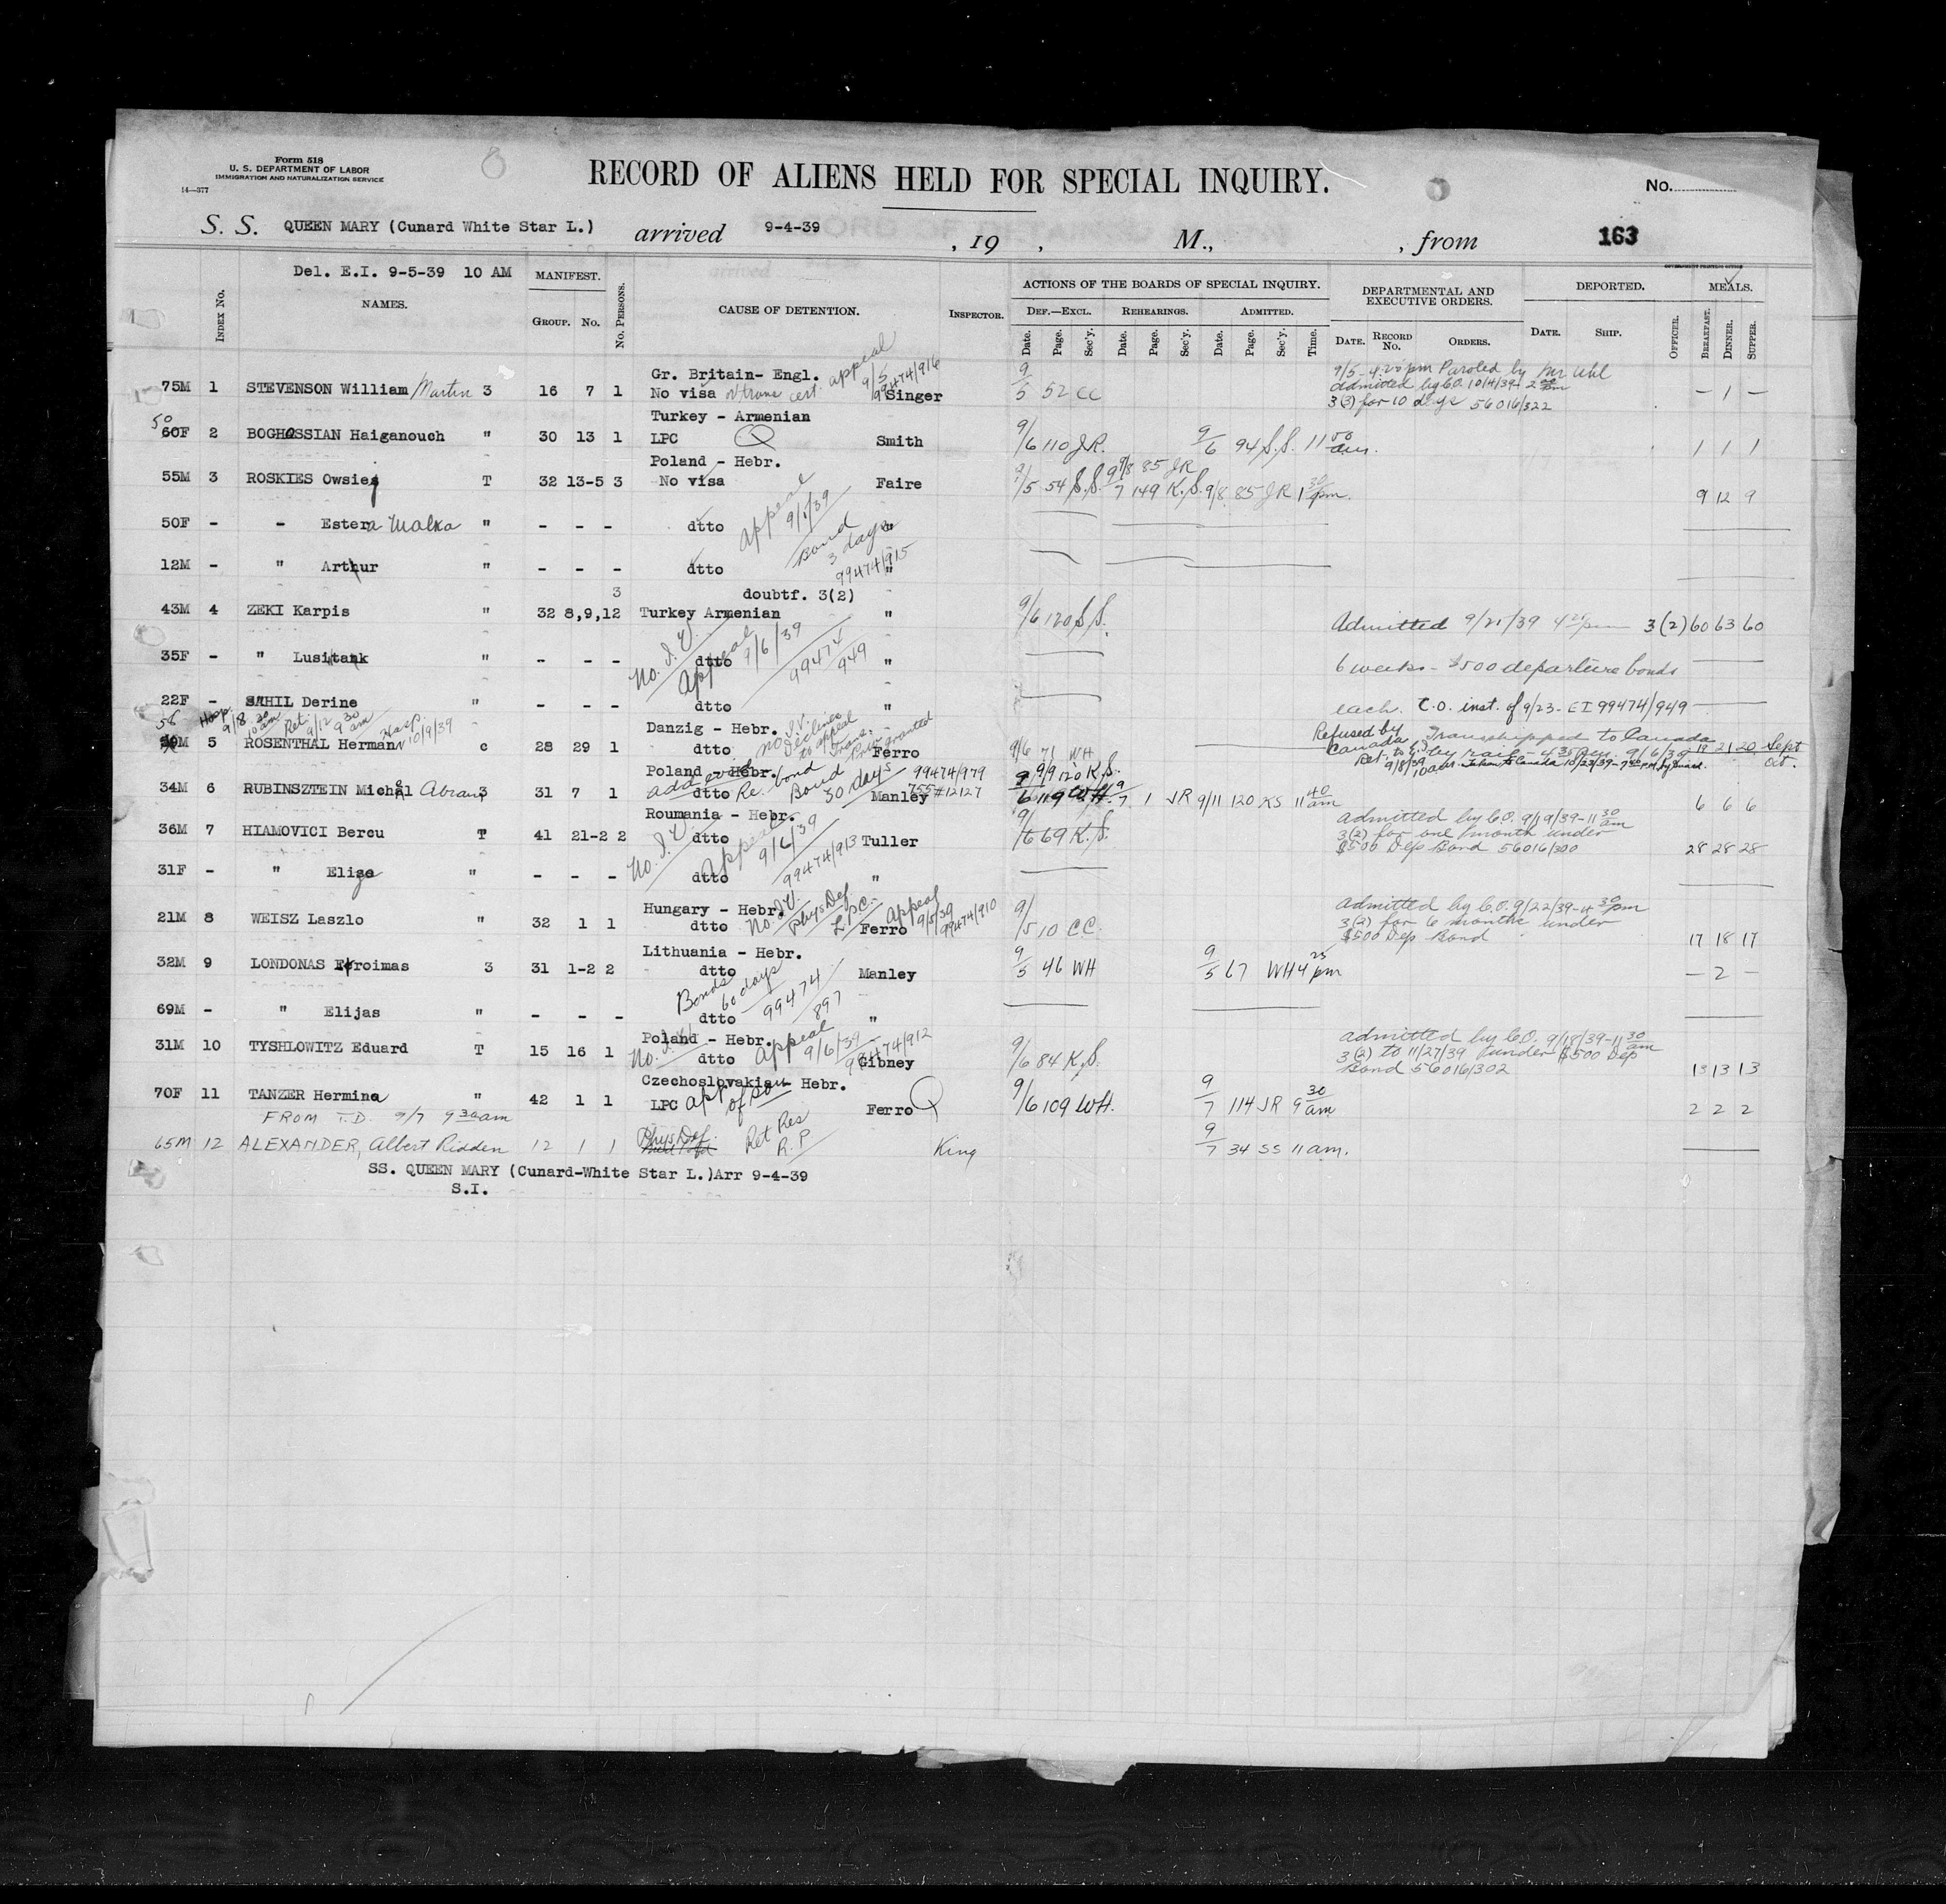 Form 518
U. S. DEPARTMENT OF LABOR
IMMIGRATION AND NATURALIZATION SERVICE
14—377
RECORD OF ALIENS HELD FOR SPECIAL INQUIRY.
No.
S. S. QUEEN MARY (Cunard White Star L.) arrived 9-4-39 , 19 , M., , from 163
GOVERNMENT PRINTING OFFICE
Del. E.I. 9-5-39 10 AM
INDEX No. NAMES. MANIFEST. GROUP. No. No. PERSONS. CAUSE OF DETENTION. INSPECTOR.
ACTIONS OF THE BOARDS OF SPECIAL INQUIRY. DEF.—EXCL. REHEARINGS. ADMITTED.
Date. Page. Sec'y. Date. Page. Sec'y. Date. Page. Sec'y. Time.
DEPARTMENTAL AND EXECUTIVE ORDERS. DATE. RECORD No. ORDERS.
DEPORTED. DATE. SHIP. OFFICER. MEALS. BREAKFAST. DINNER. SUPPER.
Gr. Britain- Engl. appeal 9/5 99474/916 9/5-4:20 pm Paroled by Mr Uhl
75M 1 STEVENSON William Martin 3 16 7 1 No visa cert. Singer 9/5 52 CC admitted by C.O. 10/4/39- 2 00 pm — 1 —
3(3) for 10 days 56016/322
Turkey - Armenian
50 60F 2 BOGHOSSIAN Haiganouch " 30 13 1 LPC Q Smith 9/6 110 J.R. 9/6 94 S.S. 11 50 am. 1 1 1
Poland - Hebr. 9/8 85 JR
55M 3 ROSKIES Owsiej T 32 13-5 3 No visa Faire 9/5 54 S.S. 9/7 149 K.S. 9/8 85 JR 1 30 pm. 9 12 9
50F - - Estera Malka " - - - dtto Appeal 9/5/39 "
Bond 3 days 99474/915
12M - " Arthur " - - - dtto "
3 doubtf. 3(2)
43M 4 ZEKI Karpis " 32 8,9,12 Turkey Armenian " 9/6 120 S.S. Admitted 9/21/39 4 pm 3(2) 60 63 60
35F - " Lusitank " - - - dtto No. I.V. Appeal 9/6/39 99474/949 " 6 weeks - $500 departure bonds
22F - SAHIL Derine " - - - dtto " each. C.O. inst. of 9/23 - EI 99474/949
Hosp. 9/8 10 30 am Ret. 9/12 9 30 am Hosp. 10/9/39
Danzig - Hebr. No I.V. Declines to appeal Trans. Priv. granted Refused by Canada Transhipped to Canada
58 59M 5 ROSENTHAL Hermann c 28 29 1 dtto Ferro 9/6 71 WH by rail - 4 35 pm. 9/6/39 19 21 20 Sept
Ret. to E.I. 9/8/39 10 am. Oct.
Poland - Hebr. Re. bond Bond 30 days 99474/979 755#12127 9/9 120 K.S.
34M 6 RUBINSZTEIN Michal Abram 3 31 7 1 dtto Manley 9/6 119 WH. 9/7 1 JR 9/11 120 KS 11 40 am 6 6 6
Roumania - Hebr. admitted by C.O. 9/19/39-11 30 am
36M 7 HIAMOVICI Bercu T 41 21-2 2 dtto Tuller 9/6 69 K.S. 3(2) for one month under
$500 Dep Bond 56016/300 28 28 28
31F - " Eliza " - - - dtto No. I.V. Appeal 9/6/39 99474/913 "
Hungary - Hebr. No I.V. Phys Def. L.P.C. Appeal 9/5/39 99474/910 admitted by C.O. 9/22/39-4 30 pm
21M 8 WEISZ Laszlo " 32 1 1 dtto Ferro 9/5 10 CC. 3(2) for 6 months under
$500 Dep Bond 17 18 17
Lithuania - Hebr.
32M 9 LONDONAS Efroimas 3 31 1-2 2 dtto Manley 9/5 46 WH 9/5 67 WH 4 25 pm — 2 —
Bonds 60 days 99474/897
69M - " Elijas " - - - dtto "
Poland - Hebr. No. I.V. Appeal 9/6/39 99474/912 admitted by C.O. 9/18/39-11 30 am
31M 10 TYSHLOWITZ Eduard T 15 16 1 dtto Gibney 9/6 84 K.S. 3(2) to 11/27/39 under $500 Dep
Bond 56016/302 13 13 13
Czechoslovakian Hebr.
70F 11 TANZER Hermina " 42 1 1 LPC Ferro Q 9/6 109 WH. 9/7 114 JR 9 30 am 2 2 2
FROM T.D. 9/7 9 30 am
65M 12 ALEXANDER, Albert Ridden 12 1 1 Phys Def. Ret Res R.P King 9/7 34 SS 11 am.
SS. QUEEN MARY (Cunard-White Star L.)Arr 9-4-39
S.I.